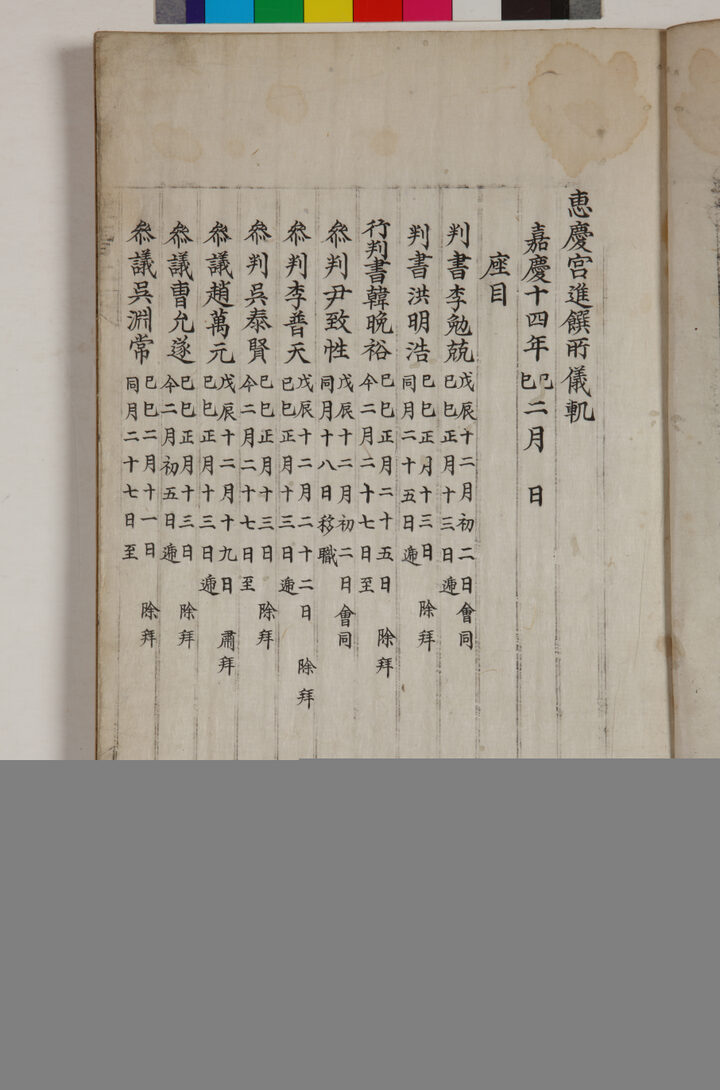 惠慶宮進饌所儀軌
嘉慶十四年己巳二月 日
座目
判書李勉兢戊辰十二月初二日會同
己巳正月十三日遞
判書洪明浩己巳正月十三日除拜
同月二十五日遞
行判書韓晩裕己巳正月二十五日除拜
今二月二十七日至
參判尹致性戊辰十二月初二日會同
同月十八日移職
參判李普天戊辰十二月二十二日除拜
己巳正月十三日遞
參判吳泰賢己巳正月十三日除拜
今二月二十七日至
參議趙萬元戊辰十二月十九日肅拜
己巳正月十三日遞
參議曹允遂己巳正月十三日除拜
今二月初五日遞
參議吳淵常己巳二月十一日除拜
同月二十七日至